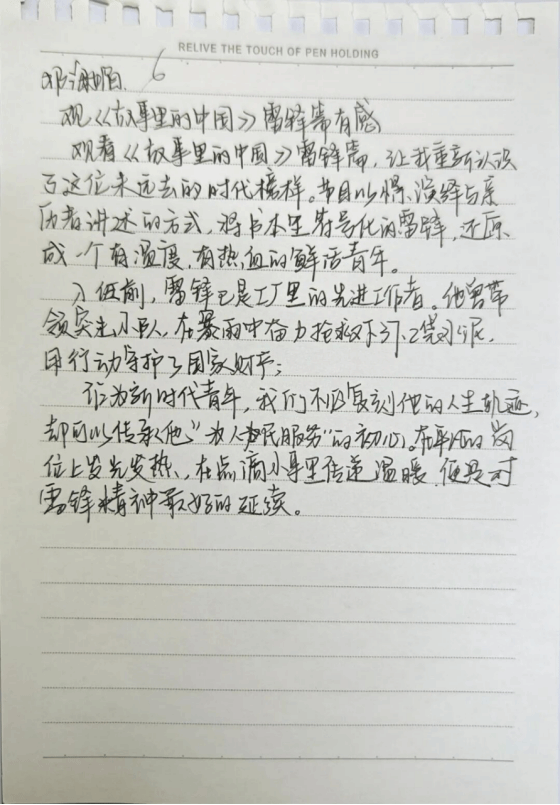 RELIVE THE TOUCH OF PEN HOLDING
邓 6
观《故事里的中国》雷锋篇有感
观看《故事里的中国》雷锋篇,让我重新认识
了这位未远去的时代榜样。节目以 演绎与亲
历者讲述的方式,将书本里符号化的雷锋,还原
成一个有温度,有热血的鲜活青年。
入伍前,雷锋已是工厂里的先进工作者。他曾带
领突击小队,在暴雨中奋力抢救 水泥,
用行动守护了国家财产;
作为新时代青年,我们不必复刻他的人生轨迹,
却可以传承他"为人民服务"的初心。在平凡的岗
位上发光发热,在点滴小事里传递温暖,便是对
雷锋精神最好的延续。